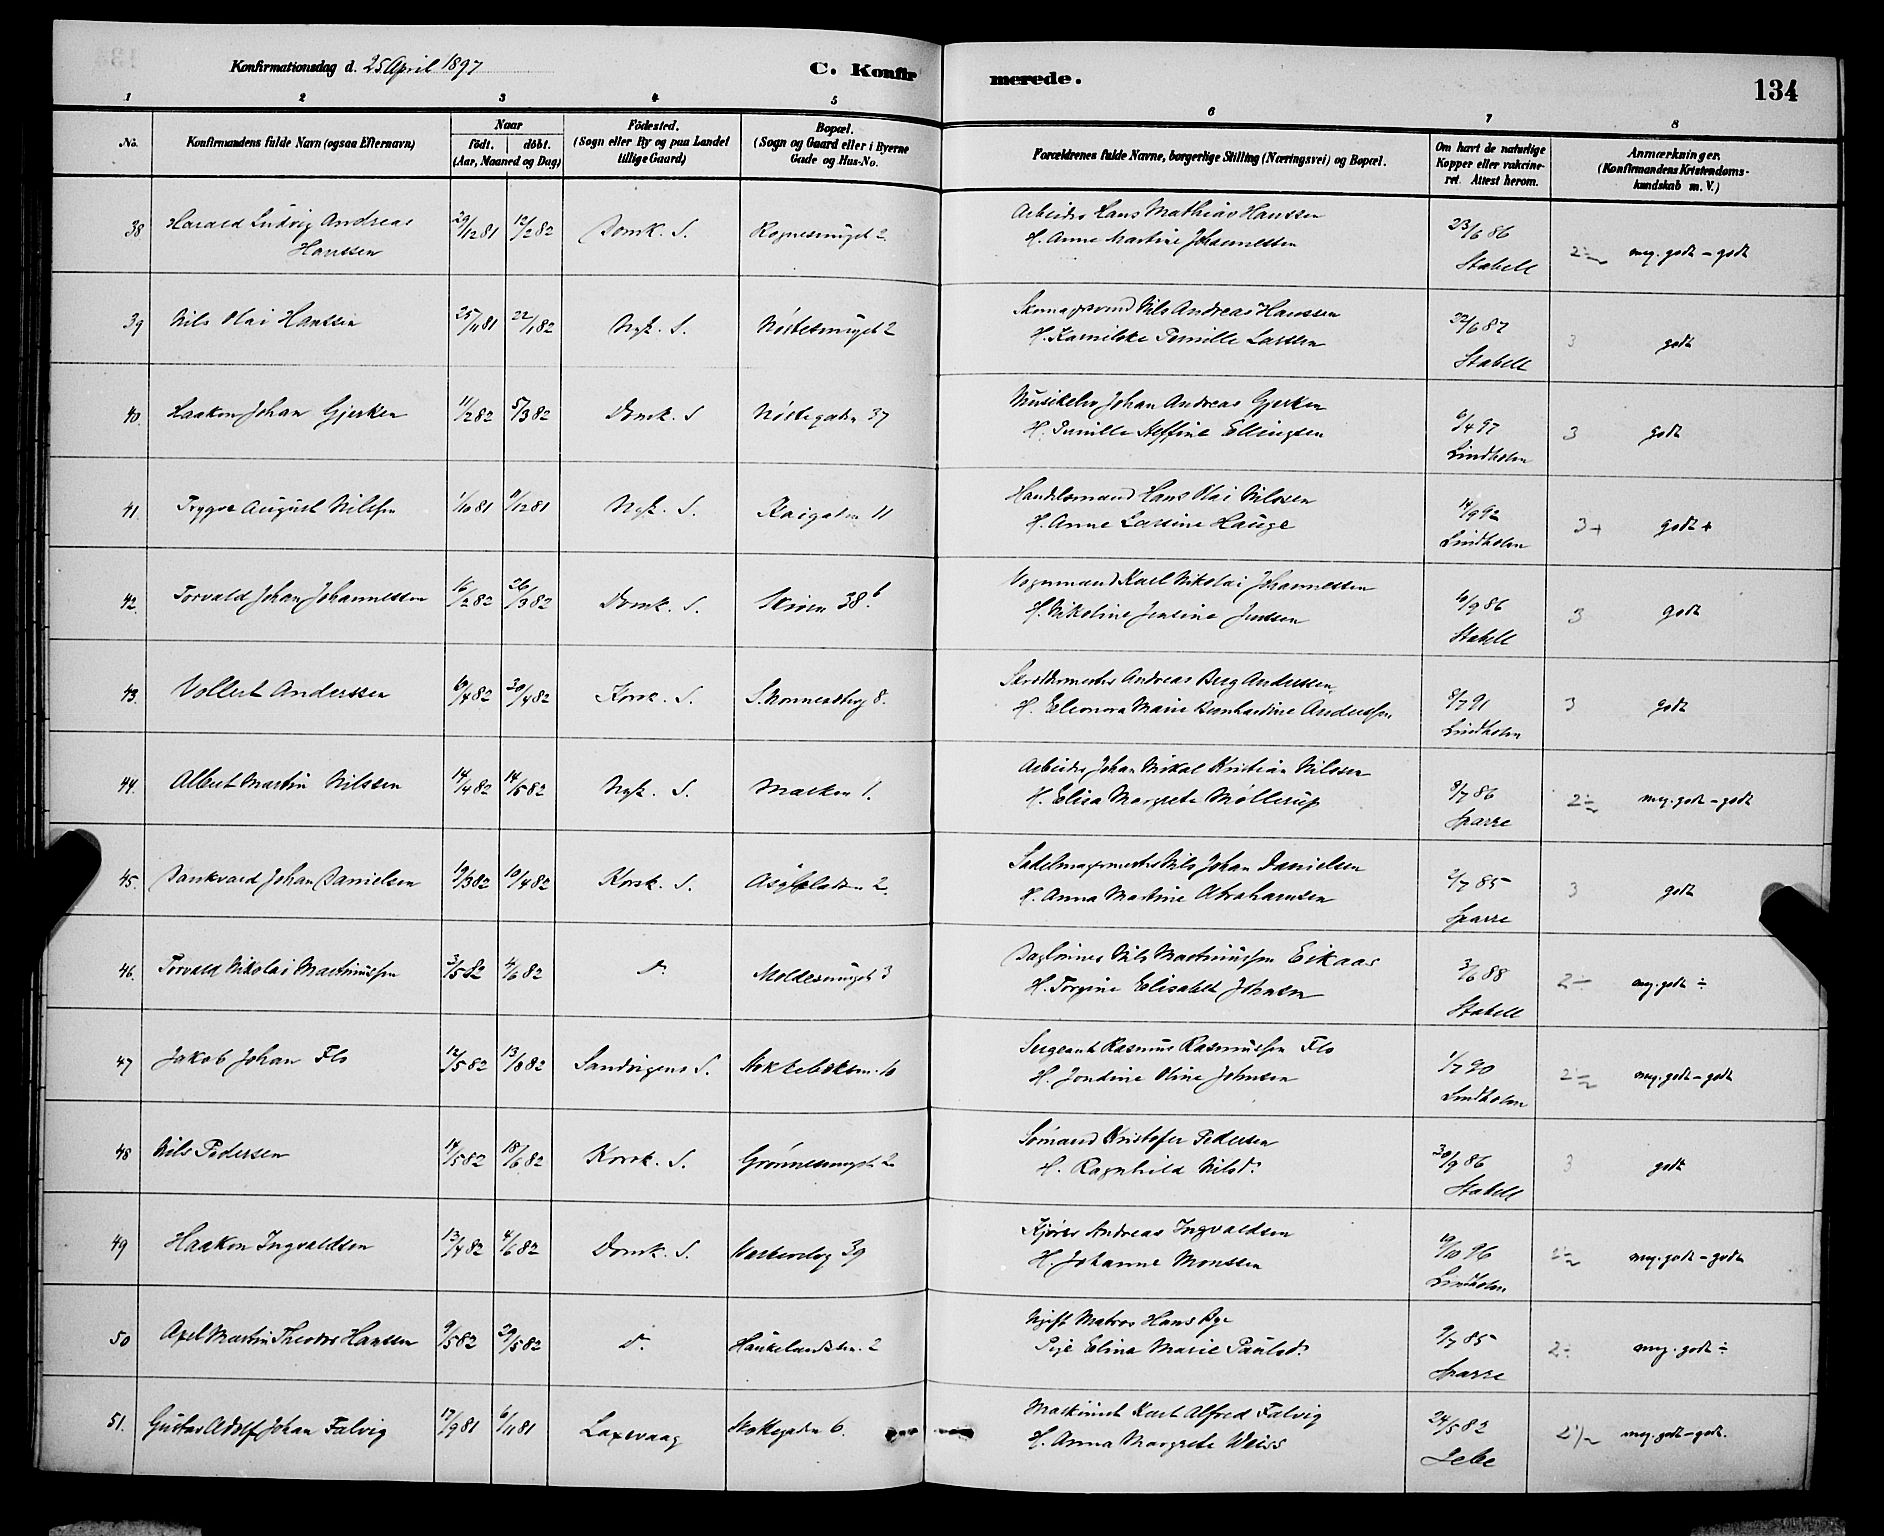 Konfirmationsdag d. 25 April 1897
C. Konfirmerede.
134
1 2 3 4 5 6 7 8
No.
Konfirmandens fulde Navn (ogsaa Efternavn)
Naar
födt. döbt.
(Aar, Maaned og Dag)
Födested.
(Sogn eller By og paa Landet
tillige Gaard)
Bopæl.
(Sogn og Gaard eller i Byerne
Gade og Hus-No.
Forældrenes fulde Navne, borgerlige Stilling (Næringsvei) og Bopæl.
Om havt de naturlige
Kopper eller vakcine-
ret. Attest herom.
Anmærkninger.
(Konfirmandens Kristendoms-
kundskab m. V.)
38 Harald Ludvig Andreas 29/12 81 12/2 82 Domk. S. Rognesmuget 2. Arbeider Hans Mathias Hanssen 23/6 86
Hanssen H. Anne Martine Johannessen Stabell 2÷ meg. godt - godt
39 Nils Olai Hanssen 25/11 81 22/1 82 Nyk. S. Nöstesmuget 2 Nils Andreas Hanssen 22/6 87
H. Pernille Larssen Stabell 3 godt
40. Haakon Johan Gjerken 11/2 82 5/3 82 Domk. S Nöstegaden 37 Johan Andreas Gjerken 6/4 97
H. Pernille Ellingsen Lindholm 3 godt
41. Trygve August Nilssen 1/10 81 11/12 81 Nyk. S. Kaigaden 11 Handelsmand Hans Olai Nilssen 14/9 92
H. Anne Larsine Hauge Lindholm 3+ godt +
42. Torvald Johan Johannessen 16/2 82 26/3 82 Domk. S. Skiven 38 b Vognmand Karl Nikolai Johannessen 10/9 86
H. Nikoline Jensine Jenssen Stabell 3 godt
43. Vollert Anderssen 6/4 82 30/4 82 Korsk. S. 8. Andreas Berg Anderssen 8/7 91
H. Eleonora Marie Bernhardine Anderssen Lindholm 3 godt
44. Albert Martin Nilssen 14/4 82 14/5 82 Nyk. S. Marken 1. Arbeider Johan Mikal Kristian Nilssen 8/7 86
H. Elisa Margrete Möllerup Sparre 2÷ meg. godt - godt
45. Dankvard Johan Danielsen 19/3 82 10/4 82 Korsk. S. 2. Sadelmagermester Nils Johan Danielsen 2/7 85
H. Anna Martine Abrahamsen Sparre 3 godt
46. Torvald Nikolai Martinussen 3/5 82 4/6 82 do Moldesmuget 3 Nils Martinussen Eikaas 3/6 88
H. Torgine Elisabeth Johnsen Stabell 2÷ meg. godt ÷
47 Jakob Johan Flo 12/5 82 13/8 82 Sandvigens S. 16 Sergeant Rasmus Rasmussen Flo 1/7 90
H. Jondine Oline Johnsen Lindholm 2÷ meg. godt - godt
48 Nils Pedersen 14/5 82 18/6 82 Korsk. S. Grönnesmuget 2 Sömand Kristofer Pedersen 30/9 86
H. Ragnhild Nilsd. Stabell 3 godt
49 Haakon Ingvaldsen 13/4 82 4/6 82 Domk. S. 39 Kjörer Andreas Ingvaldsen 19/10 96
H. Johanne Monssen Lindholm 2÷ meg. godt - godt
50 Axel Martin Theodor Hanssen 9/5 82 29/5 82 do Haukelandsbk. 2 Ugift Matros Hans 9/7 85
Pige Elina Marie Paulsd. Sparre 2÷ meg. godt ÷
51. Gustav Adolf Johan Falvig 17/9 81 6/11 81 Laxevaag 6. Maskinist Karl Alfred Falvig 24/5 83
H. Anna Margrete Weiss 2÷ meg. godt - godt.